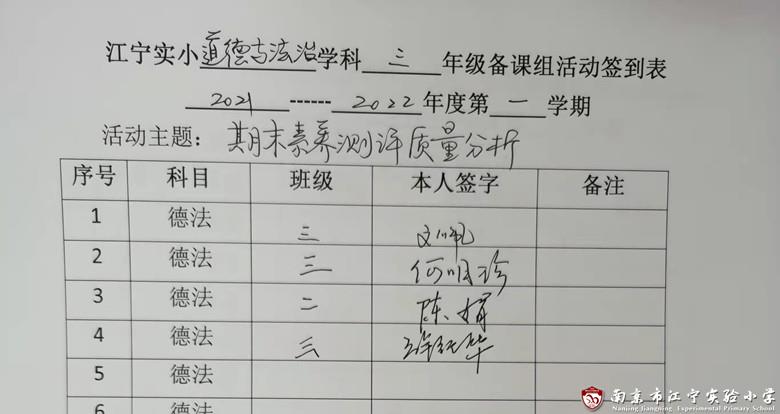 江宁实小道德与法治学科三年级备课组活动签到表
2021------2022年度第一学期
活动主题：期末素养测评质量分析
序号 科目 班级 本人签字 备注
1 德法 三
2 德法 三 何明珍
3 德法 二 陈
4 德法 三
5 德法
6 德法
南京市江宁实验小学
Nanjing Jiangning Experimental Primary School